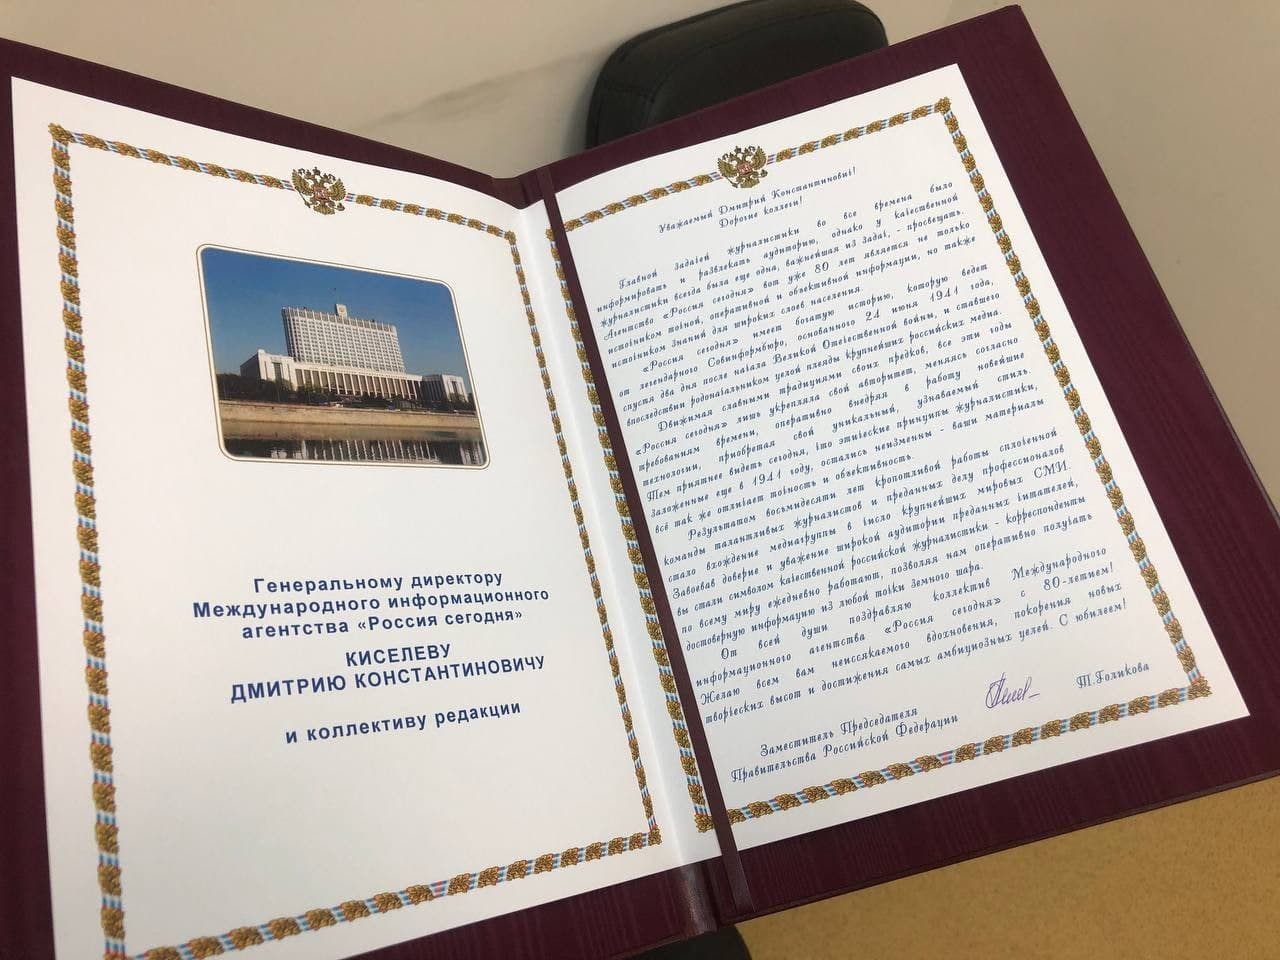 Генеральному директору
Международного информационного
агентства «Россия сегодня»
КИСЕЛЕВУ
ДМИТРИЮ КОНСТАНТИНОВИЧУ
и коллективу редакции
Уважаемый Дмитрий Константинович!
Дорогие коллеги!
Главной задачей журналистики во все времена было
информировать и развлекать аудиторию, однако у качественной
журналистики всегда была еще одна, важнейшая из задач, - просвещать.
Агентство «Россия сегодня» вот уже 80 лет является не только
источником точной, оперативной и объективной информации, но также
источником знаний для широких слоев населения.
«Россия сегодня» имеет богатую историю, которую ведет
от легендарного Совинформбюро, основанного 24 июня 1941 года,
спустя два дня после начала Великой Отечественной войны, и ставшего
впоследствии родоначальником целой плеяды крупнейших российских медиа.
Движимая славными традициями своих предков, все эти годы
«Россия сегодня» лишь укрепляла свой авторитет, меняясь согласно
требованиям времени, оперативно внедряя в работу новейшие
технологии, приобретая свой уникальный, узнаваемый стиль.
Тем приятнее видеть сегодня, что этические принципы журналистики,
заложенные еще в 1941 году, остались неизменны - ваши материалы
всё так же отличает точность и объективность.
Результатом восьмидесяти лет кропотливой работы сплоченной
команды талантливых журналистов и преданных делу профессионалов
стало вхождение медиагруппы в число крупнейших мировых СМИ.
Завоевав доверие и уважение широкой аудитории преданных читателей,
вы стали символом качественной российской журналистики - корреспонденты
по всему миру ежедневно работают, позволяя нам оперативно получать
достоверную информацию из любой точки земного шара.
От всей души поздравляю коллектив Международного
информационного агентства «Россия сегодня» с 80-летием!
Желаю всем вам неиссякаемого вдохновения, покорения новых
творческих высот и достижения самых амбициозных целей. С юбилеем!
Заместитель Председателя
Правительства Российской Федерации
Т.Голикова